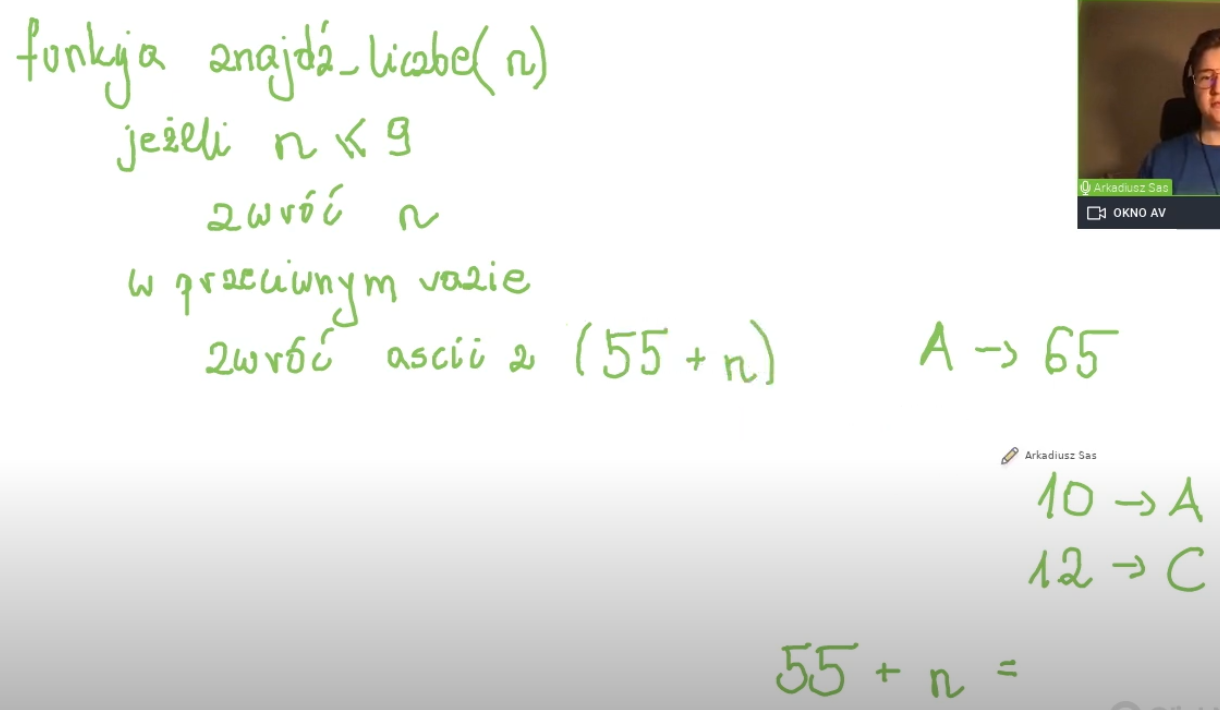 funkcja znajdź_liczbe(n)
jeżeli n ≤ 9
zwróć n
w przeciwnym razie
zwróć ascii z (55 + n)
A → 65
10 → A
12 → C
55 + n =
Arkadiusz Sas
OKNO AV
Arkadiusz Sas